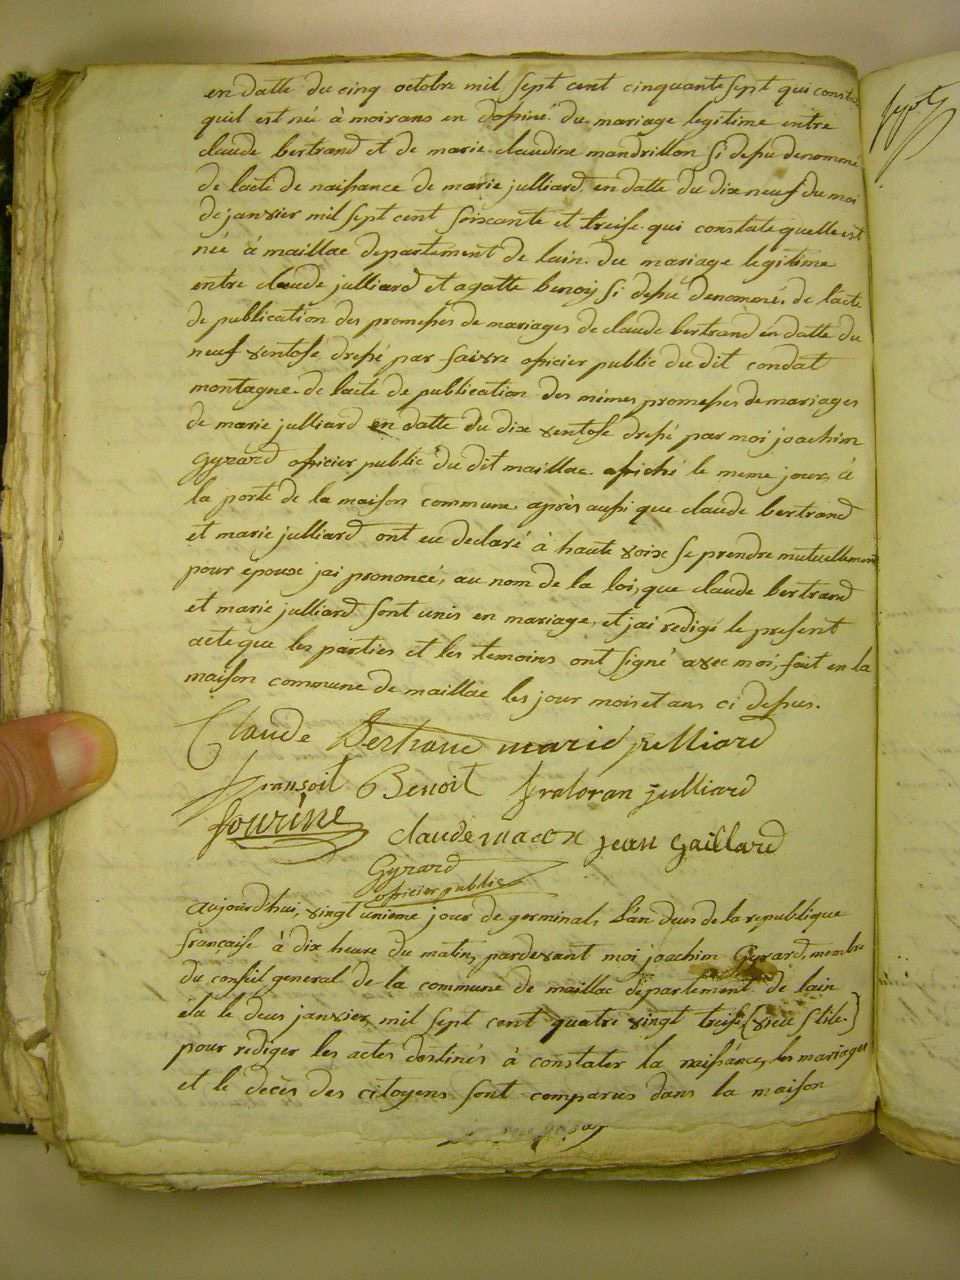 en datte du cinq octobre mil sept cent cinquante sept qui constate
quil est né à moirans en dofiné du mariage legitime entre
claude bertrand et de marie claudine mandrillon si desus denommé
de lacte de naissance de marie julliard en datte du dix neuf du moi
de janvier mil sept cent soixante et treise qui constate quelle est
née à maillac departement de lain du mariage legitime
entre claude julliard et agatte benoy si desus denommés de lacte
de publication des promesses de mariages de claude bertrand en datte du
neuf ventose dressé par faivre officier public du dit condat
montagne de lacte de publication des mêmes promesses de mariages
de marie julliard en datte du dix ventose dressé par moi joachim
Gyrard officier public du dit maillac affiché le meme jour, à
la porte de la maison commune, après aussi que claude bertrand
et marie julliard ont eu declaré à haute voix se prendre mutuellement
pour epoux j'ai prononcé, au nom de la loi, que claude bertrand
et marie julliard sont unis en mariage, et jai redigé le present
acte que les parties et les temoins ont signé avec moi, fait en la
maison commune de maillac les jour mois et ans ci desus.
Claude Bertrand marie julliard
fransoit Benoit julliard
claude jean gaillard
Gyrard
officier public
aujourdhui, vingt unieme jour de germinal, l'an deus de la republique
française à dix heure du matin, pardevant moi joachim Gyrard, membre
du conseil general de la commune de maillac departement de lain
élu le deus janvier mil sept cent quatre vingt treise (vieu stile)
pour rediger les actes destinés à constater la naissance, les mariages
et le decès des citoyens sont comparus dans la maison